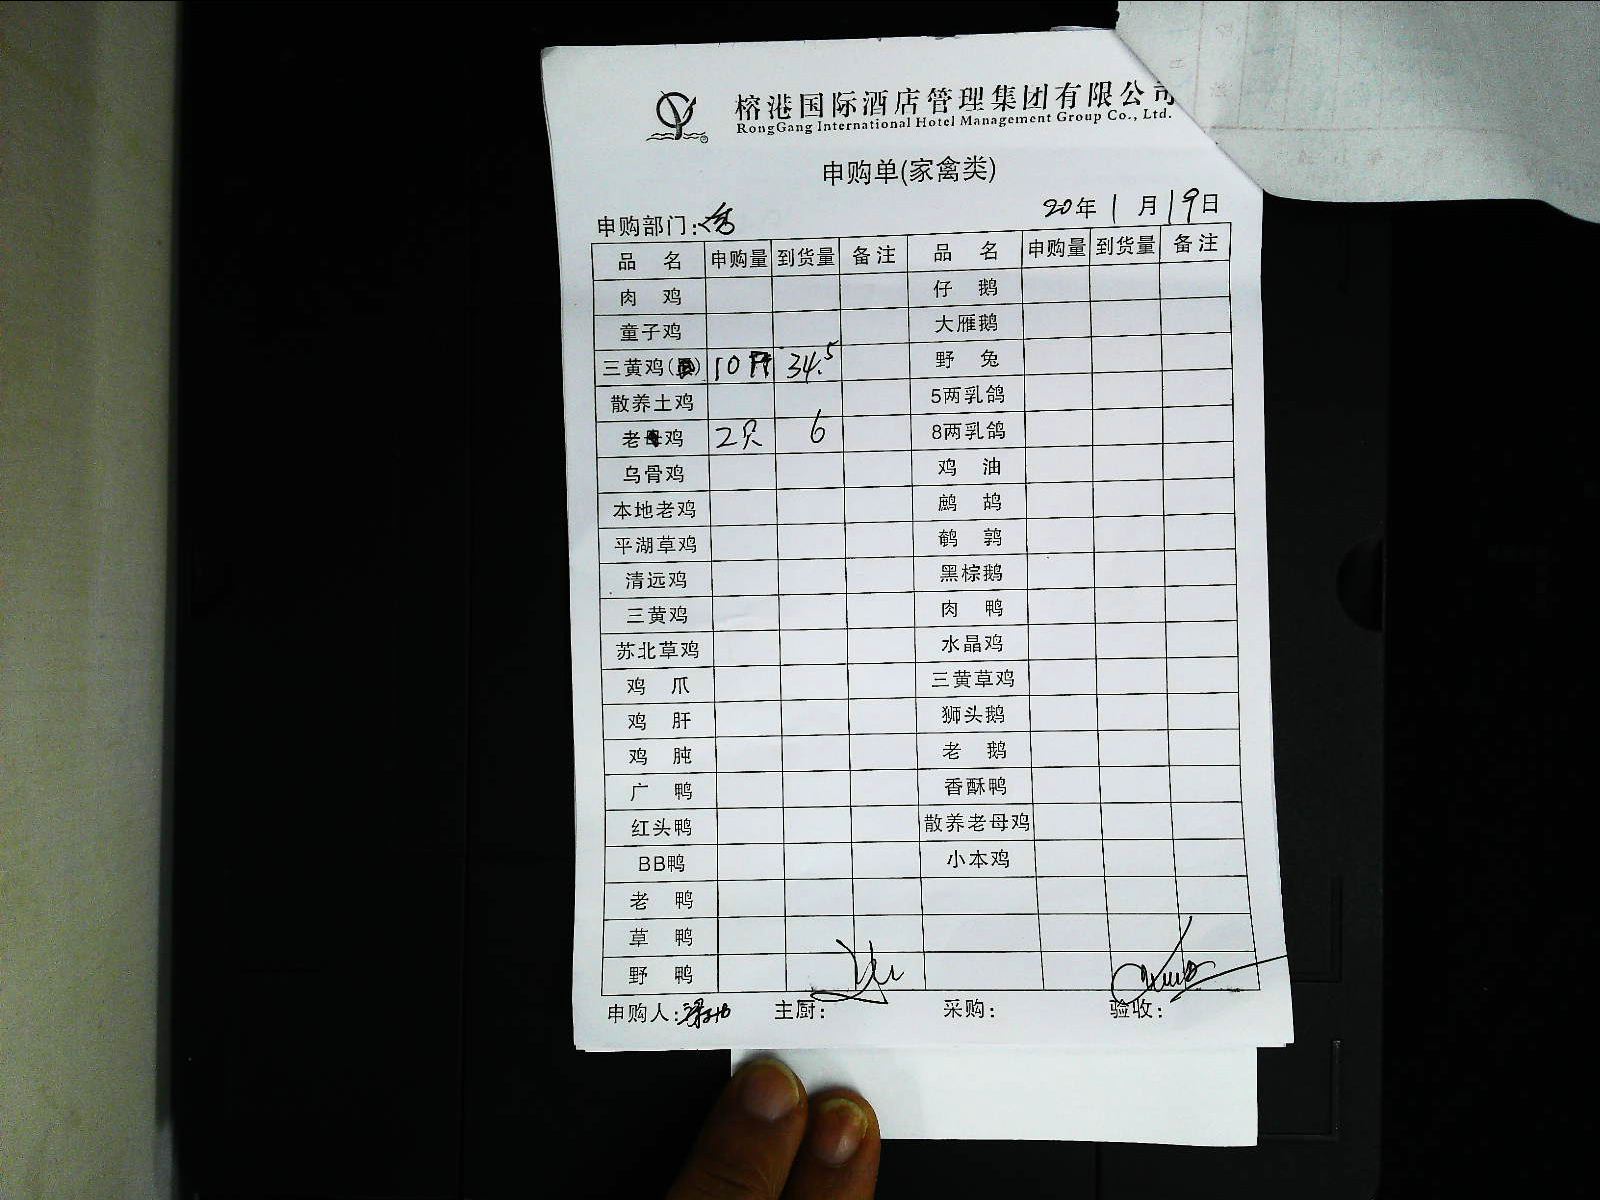 榕港国际酒店管理集团有限公司
RongGang International Hotel Management Group Co., Ltd.
申购单(家禽类)
申购部门:
20年1月19日
品 名 申购量 到货量 备注 品 名 申购量 到货量 备注
肉 鸡 仔 鹅
童子鸡 大雁鹅
三黄鸡( ) 10 34.5 野 兔
散养土鸡 5两乳鸽
老母鸡 2只 6 8两乳鸽
乌骨鸡 鸡 油
本地老鸡 鹧 鸪
平湖草鸡 鹌 鹑
清远鸡 黑棕鹅
三黄鸡 肉 鸭
苏北草鸡 水晶鸡
鸡 爪 三黄草鸡
鸡 肝 狮头鹅
鸡 肫 老 鹅
广 鸭 香酥鸭
红头鸭 散养老母鸡
BB鸭 小本鸡
老 鸭
草 鸭
野 鸭
申购人: 主厨: 采购: 验收: